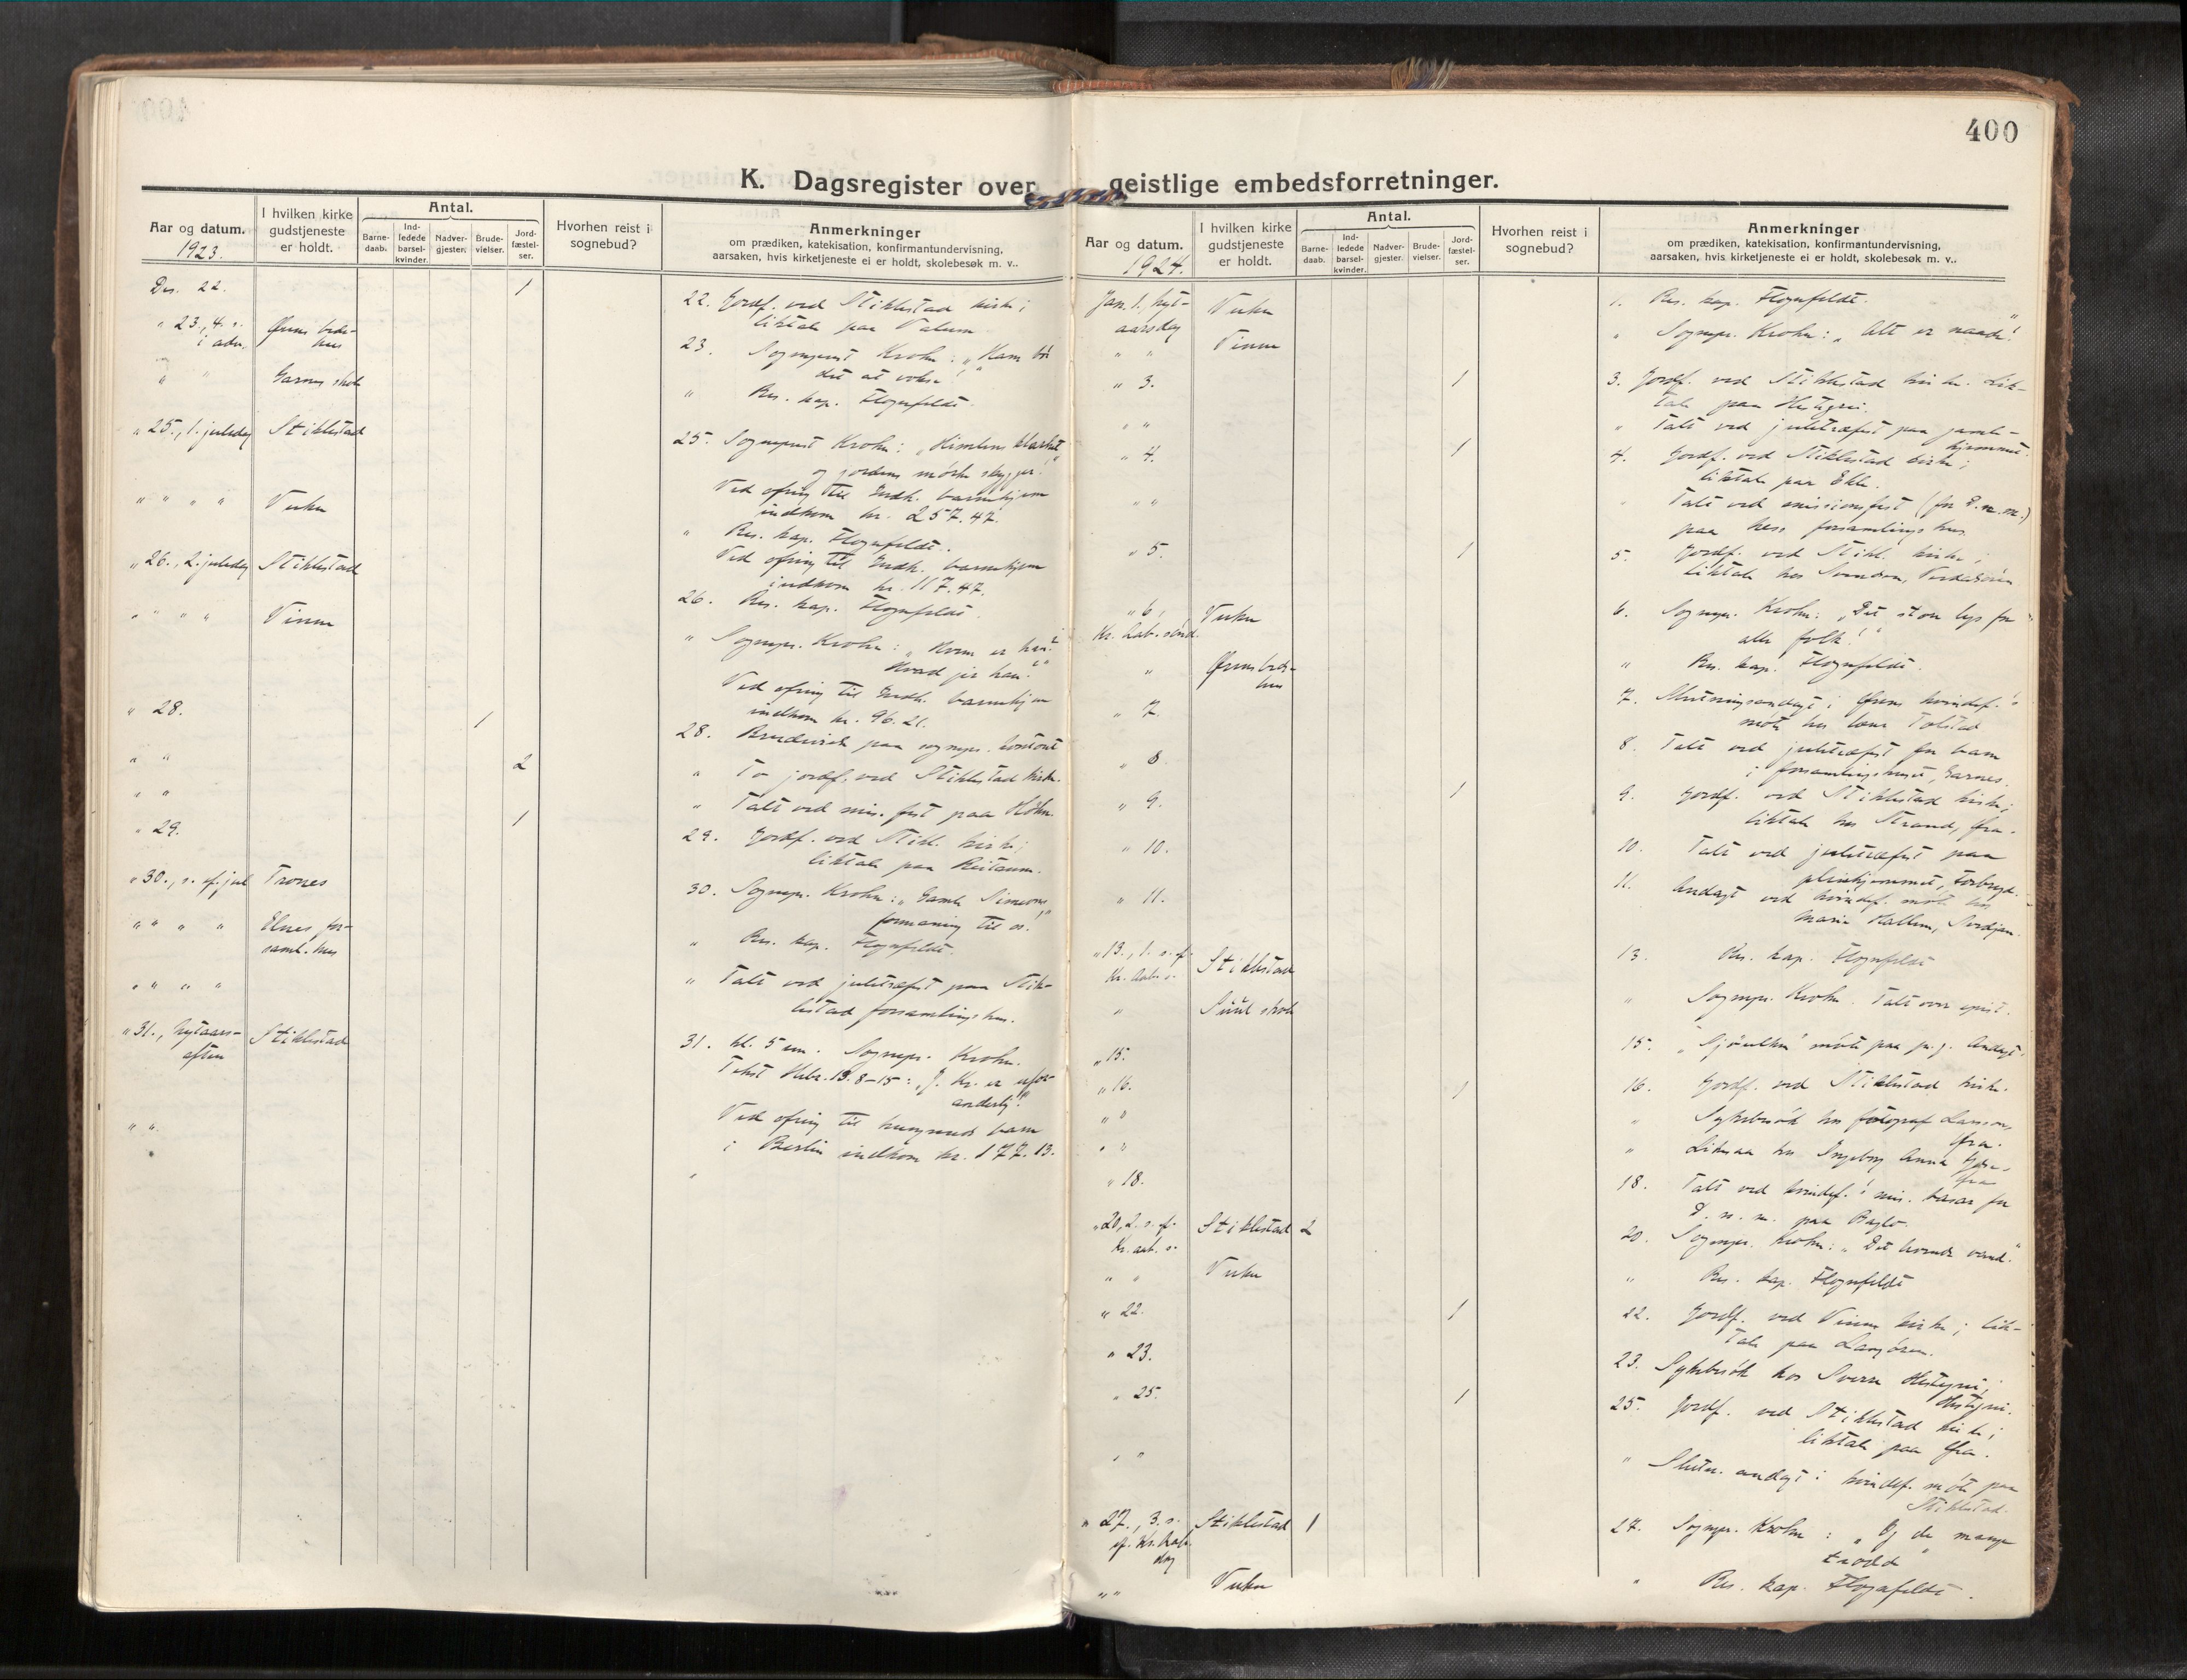 400
K. Dagsregister over geistlige embedsforretninger.
Aar og datum.
1923.
I hvilken kirke
gudstjeneste
er holdt.
Antal.
Barne-
daab.
Ind-
ledede
barsel-
kvinder.
Nadver-
gjester.
Brude-
vielser.
Jord-
fæstel-
ser.
Hvorhen reist i
sognebud?
Anmerkninger
om prædiken, katekisation, konfirmantundervisning,
aarsaken, hvis kirketjeneste ei er holdt, skolebesøk m. v..
Des. 22. 1 22. Jordf. ved Stiklestad kirke;
liktale paa Valum
" 23., 4. s. i adv. Ørens bede-
hus 23. Sogneprest Krohn: "Ham bør
det at vokse."
" " Garnes skole " Res. kap. Fløgnfeldt
" 25., 1. juledag Stiklestad 25. Sogneprest Krohn: "Himlens klarhet
og jordens mørke skygger."
Ved ofring til Indh. barnehjem
indkom kr. 257.47.
" " " " Vuku " Res. kap. Fløgnfeldt.
Ved ofring til Indh. barnehjem
indkom kr. 117.47.
" 26., 2. juledag Stiklestad 26. Res. kap. Fløgnfeldt.
" " " " Vinne " Sognepr. Krohn: "Hvem er han?
Hvad gir han?"
Ved ofring til Indh. barnehjem
indkom kr. 96.21.
" 28. 1 28. Brudevielse paa sognepr. kontor
" " 2 " To jordf. ved Stiklestad kirke.
" " " Talt ved mis. fest paa
" 29. 1 29. Jordf. ved Stikl. kirke;
liktale paa Reitaum.
" 30., s. ef. jul Trones 30. Sognepr. Krohn: "Gamle Simeons
formaning til os."
" " " " Elnes for-
saml.hus " Res. kap. Fløgnfeldt.
" " " " " Talt ved juletræfest paa Stik-
lestad forsamlingshus.
" 31., Nytaars-
aften Stiklestad 31. kl. 5 em. Sognepr. Krohn.
Tekst Hebr. 13. 8-15: "J. Kr. er ufor-
anderlig."
Ved ofring til hungrende barn
i Berlin indkom kr. 177.13.
" "
Aar og datum.
1924.
I hvilken kirke
gudstjeneste
er holdt.
Antal.
Barne-
daab.
Ind-
ledede
barsel-
kvinder.
Nadver-
gjester.
Brude-
vielser.
Jord-
fæstel-
ser.
Hvorhen reist i
sognebud?
Anmerkninger
om prædiken, katekisation, konfirmantundervisning,
aarsaken, hvis kirketjeneste ei er holdt, skolebesøk m. v..
Jan. 1. Nyt-
aarsdag Vuku 1. Res. kap. Fløgnfeldt.
" " Vinne " Sognepr. Krohn: "Alt er naade!"
" 3. 1 3. Jordf. ved Stiklestad kirke. Lik-
tale paa Hestegrei.
" " " Talt ved juletræfest paa gamle-
hjemmet.
" 4. 1 4. Jordf. ved Stiklestad kirke;
liktale paa Ekle.
" " " Talt ved missionsfest (for D. n. m.)
paa Ness forsamlingshus.
" 5. 1 5. Jordf. ved Stikl. kirke;
liktale hos Svendsen, Verdalsøren
" 6., Kr. aab. sønd. Vuku 6. Sognepr. Krohn: "Det store lys for
alle folk!"
" Ørens bede-
hus " Res. kap. Fløgnfeldt.
" 7. 7. Slutningsandagt i Ørens kvindef.'s
møte hos Tolstad
" 8 8. Talt ved juletræfest for barn
i forsamlingshuset, Garnes.
" 9. 1 9. Jordf. ved Stiklestad kirke;
liktale hos Strand, Øra.
" 10. 10. Talt ved juletræfest paa
pleiehjemmet, Forbregd.
" 11. 11. Andagt ved kvindef. møte hos
Marie Hallem,
" 13., 1. s. ef.
Kr. aab. s. Stiklestad 13. Res. kap. Fløgnfeldt
" Suul skole " Sognepr. Krohn. Talt over epist.
" 15. 15. møte paa pr.g. Andagt.
" 16. 1 16. Jordf. ved Stiklestad kirke.
" " " Sykebesøk hos fotograf Larssen,
Øra.
" " " Likesaa hos Ingeborg Anna
Øra
" 18. 18. Talt ved kvindef.'s mis. basar for
D. n. m. paa
" 20, 2. s. ef.
Kr. aab. s. Stiklestad 2 20. Sognepr. Krohn: "Det levende vand."
" " Vuku " Res. kap. Fløgnfeldt
" 22. 1 22. Jordf. ved Vinne kirke; lik-
tale paa
" 23. 23. Sykebesøk hos Sverre Hestegrei,
Hestegrei.
" 25. 1 25. Jordf. ved Stiklestad kirke;
liktale paa Øra.
" " " Slutn. andagt i kvindef. møte paa
Stiklestad.
" 27., 3. s.
ef. Kr. aab.
dag Stiklestad 1 27. Sognepr. Krohn: "Og de mange
trodde"
" " Vuku " Res. kap. Fløgnfeldt.